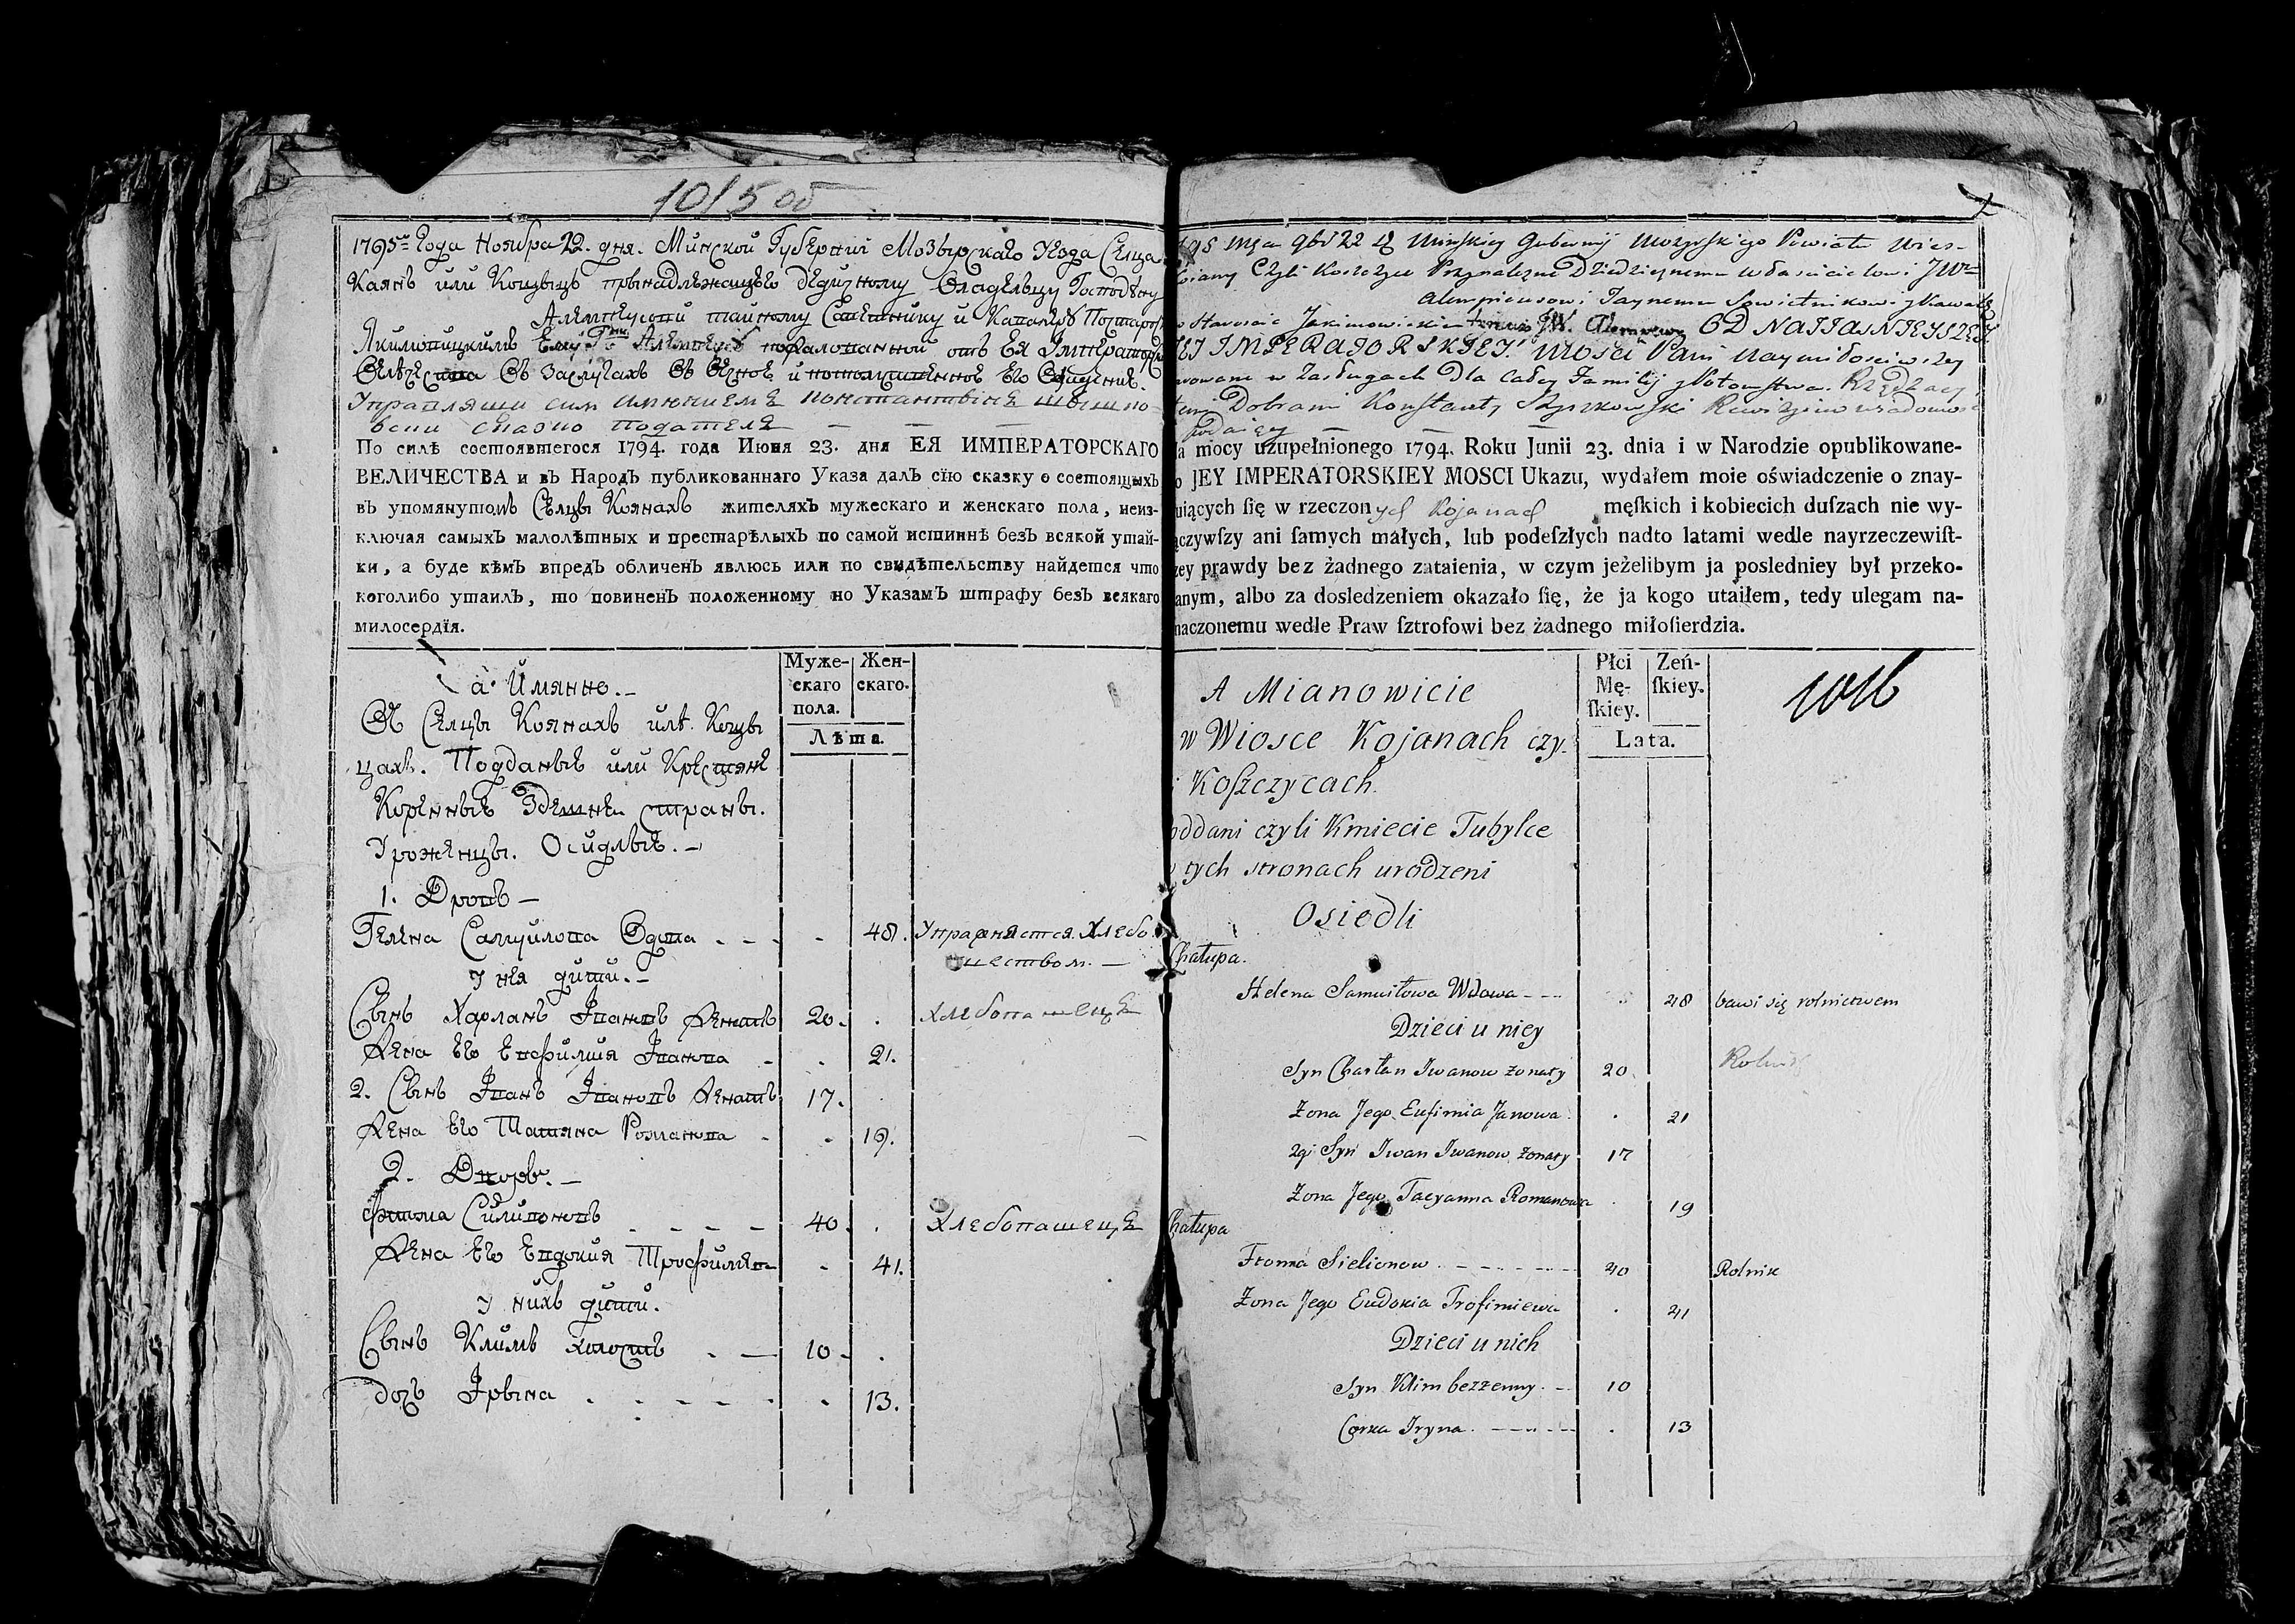 1015 об
1795го Года Ноября 22. дня. Минской Губернии Мозырскаго Уезда Селца
Каянъ или Кощыцъ
Господину
тайному Советнику и Кавалеру
отъ Ея Император
въ Заслугахъ въ вечное и его
Управляющи сим имениемъ
подателя
По силѣ состоявшегося 1794. года Июня 23. дня ЕЯ ИМПЕРАТОРСКАГО
ВЕЛИЧЕСТВА и въ Народъ публикованнаго Указа далъ сїю сказку о состоящыхъ
въ упомянутомъ Селцы Коянахъ жителяхъ мужескаго и женскаго пола, неиз-
ключая самыхъ малолѣтныхъ и престарѣлыхъ по самой истиннѣ безъ всякой утай-
ки, а буде кѣмъ впредъ обличенъ явлюсь или по свидѣтельству найдется что
коголибо утаилъ, то повиненъ положенному по Указамъ штрафу безъ всякаго
милосердїя.
а Имянно.
Въ Селцы Коянахъ или Кощы
цахъ. Подданые или Крестяне
Коренные Здешне страны.
Уроженцы. Оседлые.
Муже-
скаго
пола.
Жен-
скаго.
Лѣта.
1. Дворъ
Гелена Самуйлова Вдова 48. Упражняется Хлебо
пашеством.
У нея дети.
Сынъ Харланъ Івановъ женатъ 20. хлебопашецъ
Жена Его Евфимия Іванова 21.
2. Сынъ Іванъ Івановъ женатъ 17.
Жена Его Татяна Романова 19.
2. Дворъ.
Фтома Силивоновъ 40. Хлебопашецъ
Жена Его Евдокия 41.
У нихъ дети.
Сынъ Климъ холостъ 10.
дочъ Ірына 13.
795 22 Minskiey Gubernij Mozyrskiego Powiatu Wios-
Czyli Koszczyce Przynalezne Dziedzicznemu wlascicielowi JW
Taynemu Sowietnikowi y Kawal
Starostwie JW. OD NAIJASNIEYSZEY
IMPERATORSKIEY. MOSCI Pani Naymilosciwszey
w Zaslugach Dla Caley Familij y Potomstwa. Rzędzący
temi Dobrami Konstanty Szyszkowski
podaięcy
a mocy uzupełnionego 1794. Roku Junii 23. dnia i w Narodzie opublikowane-
o JEY IMPERATORSKIEY MOSCI Ukazu, wydałem moie oświadczenie o znay-
uiących ſię w rzeczonych Kojanach męſkich i kobiecich duſzach nie wy-
ączywſzy ani ſamych małych, lub podeſzłych nadto latami wedle nayrzeczewiſt-
zey prawdy bez żadnego zataienia, w czym jeżelibym ja posledniey był przeko-
anym, albo za dosledzeniem okazało ſię, że ja kogo utaiłem, tedy ulegam na-
naczonemu wedle Praw ſztrofowi bez żadnego miłoſierdzia.
A Mianowicie
w Wiosce Kojanach czy-
i Koſzczycach.
oddani czyli Kmiecie Tubylce
w tych stronach urodzeni
Osiedli
Płci
Mę-
ſkiey.
Zeń-
ſkiey.
Lata.
1016
Chałupa.
Helena Samuiłowa Wdowa 48 bawi się rolnictwem
Dzieci u niey
Syn Charłan Iwanow żonaty 20 Rolnik
Zona Jego Eufimia Janowa 21
2gi Syn Iwan Iwanow żonaty 17
Zona Jego Tacyanna Romanowa 19
Chałupa
Ftoma Sielionow 40 Rolnik
Zona Jego Eudokia Trofimiewa 41
Dzieci u nich
Syn Klim bezżenny 10
Corka Iryna 13